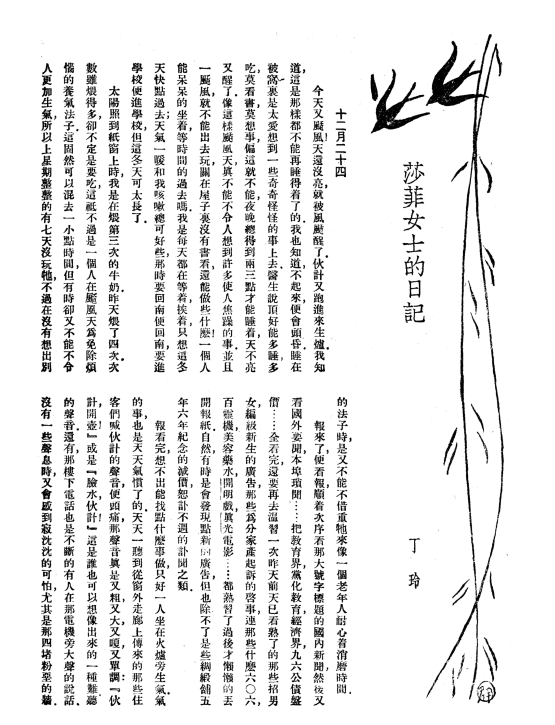 莎菲女士的日記
丁玲
十二月二十四
今天又颳風天還沒亮,就被風颳醒了.伙計又跑進來生爐.我知
道,這是那樣都不能再睡得着了的.我也知道,不起來,便會頭昏.睡在
被窩裏是太愛想到一些奇奇怪怪的事上去.醫生說頂好能多睡,多
吃,莫看書,莫想事,偏這就不能,夜晚總得到兩三點才能睡着,天不亮
又醒了.像這樣颳風天,真不能不令人想到許多使人焦躁的事.並且
一颳風,就不能出去玩,關在屋子裏沒有書看,還能做些什麼?一個人
能呆呆的坐着,等時間的過去嗎?我是每天都在等着,挨着,只想這冬
天快點過去;天氣一暖和,我咳嗽總可好些,那時要回南便回南,要進
學校便進學校,但這冬天可太長了.
太陽照到紙窗上時,我是在煨第三次的牛奶.昨天煨了四次.次
數雖煨得多,卻不定是要吃,這祇不過是一個人在颳風天爲免除煩
惱的養氣法子.這固然可以混去一小點時間,但有時卻又不能不令
人更加生氣,所以上星期整整的有七天沒玩牠,不過在沒有想出別
的法子時,是又不能不借重牠來像一個老年人耐心着消磨時間.
報來了,便看報,順着次序看那大號字標題的國內新聞,然後又
看國外要聞,本埠瑣聞……把教育界,黨化教育,經濟界,九六公債盤
價……全看完,還要再去溫習一次昨天前天已看熟了的那些招男
女編級新生的廣告,那些爲分家產起訴的啓事,連那些什麼六〇六,
百靈機,美容藥水,開明戲,真光電影……都熟習了過後才懶懶的丟
開報紙.自然,有時是會發現點新的廣告,但也除不了是些綢緞鋪五
年六年紀念的減價,恕訃不週的訃聞之類.
報看完,想不出能找點什麼事做,只好一人坐在火爐旁生氣.氣
的事,也是天天氣慣了的.天天一聽到從窗外走廊上傳來的那些住
客們喊伙計的聲音,便頭痛,那聲音真是又粗,又大,又嗄,又單調:『伙
計,開壺!』或是『臉水,伙計!』這是誰也可以想像出來的一種難聽
的聲音.還有,那樓下電話也是不斷的有人在那電機旁大聲的說話.
沒有一些聲息時,又會感到寂沈沈的可怕,尤其是那四堵粉堊的牆.